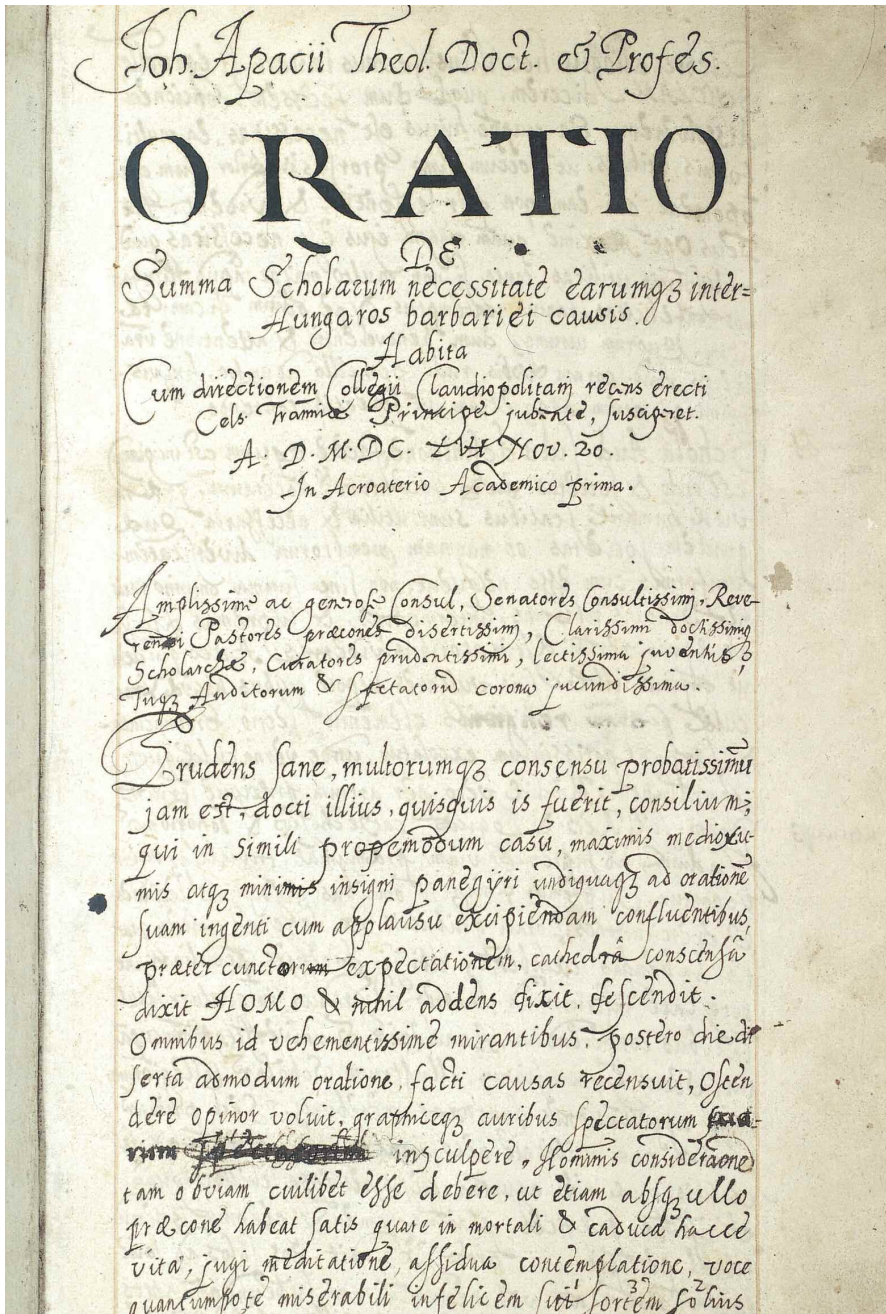 Joh. Apacii Theol. Doct. & Profes.
ORATIO
DE
Summa Scholarum necessitate earumq3 inter=
Hungaros barbariei causis.
Habita
Cum directionem Collegii Claudiopolitani recens erecti
Cels. Principe jubente, susciperet.
A. D. M. DC. LVI Nov. 20.
In Acroaterio Academico prima.
Amplissime ac generose Consul, Senatores Consultissimi, Reve-
rendi Pastores præcones disertissimi, Clarissimi doctissimiq3
Scholarchæ, Curatores prudentissimi, lectissima juventus,
Tuq3 Auditorum & spectatorū corona jucundissima.
Prudens sane, multorumq3 consensu probatissimū
jam est, docti illius, quisquis is fuerit, consilium;
qui in simili propemodum casu, maximis medioxu-
mis atq3 minimis insigni panegÿri undiquaq3 ad orationē
suam ingenti cum applausu excipiendam confluentibus,
præter cunctorum expectationem, cathedrâ conscensâ
dixit HOMO & nihil addens dixit, descendit.
Omnibus id vehementissime mirantibus, postero die di
serta admodum oratione, facti causas recensuit, Osten
dere opinor voluit, graphiceq3 auribus spectatorum sua-
rum insculpere, Hominis considerationē
tam obviam cuilibet esse debere, ut etiam absq3 ullo
præcone habeat satis quare in mortali & caduca hacce
vita, jugi meditatione, assidua contemplatione, voce
quantumpote miserabili infelicem sui¹ sortem³ solius²